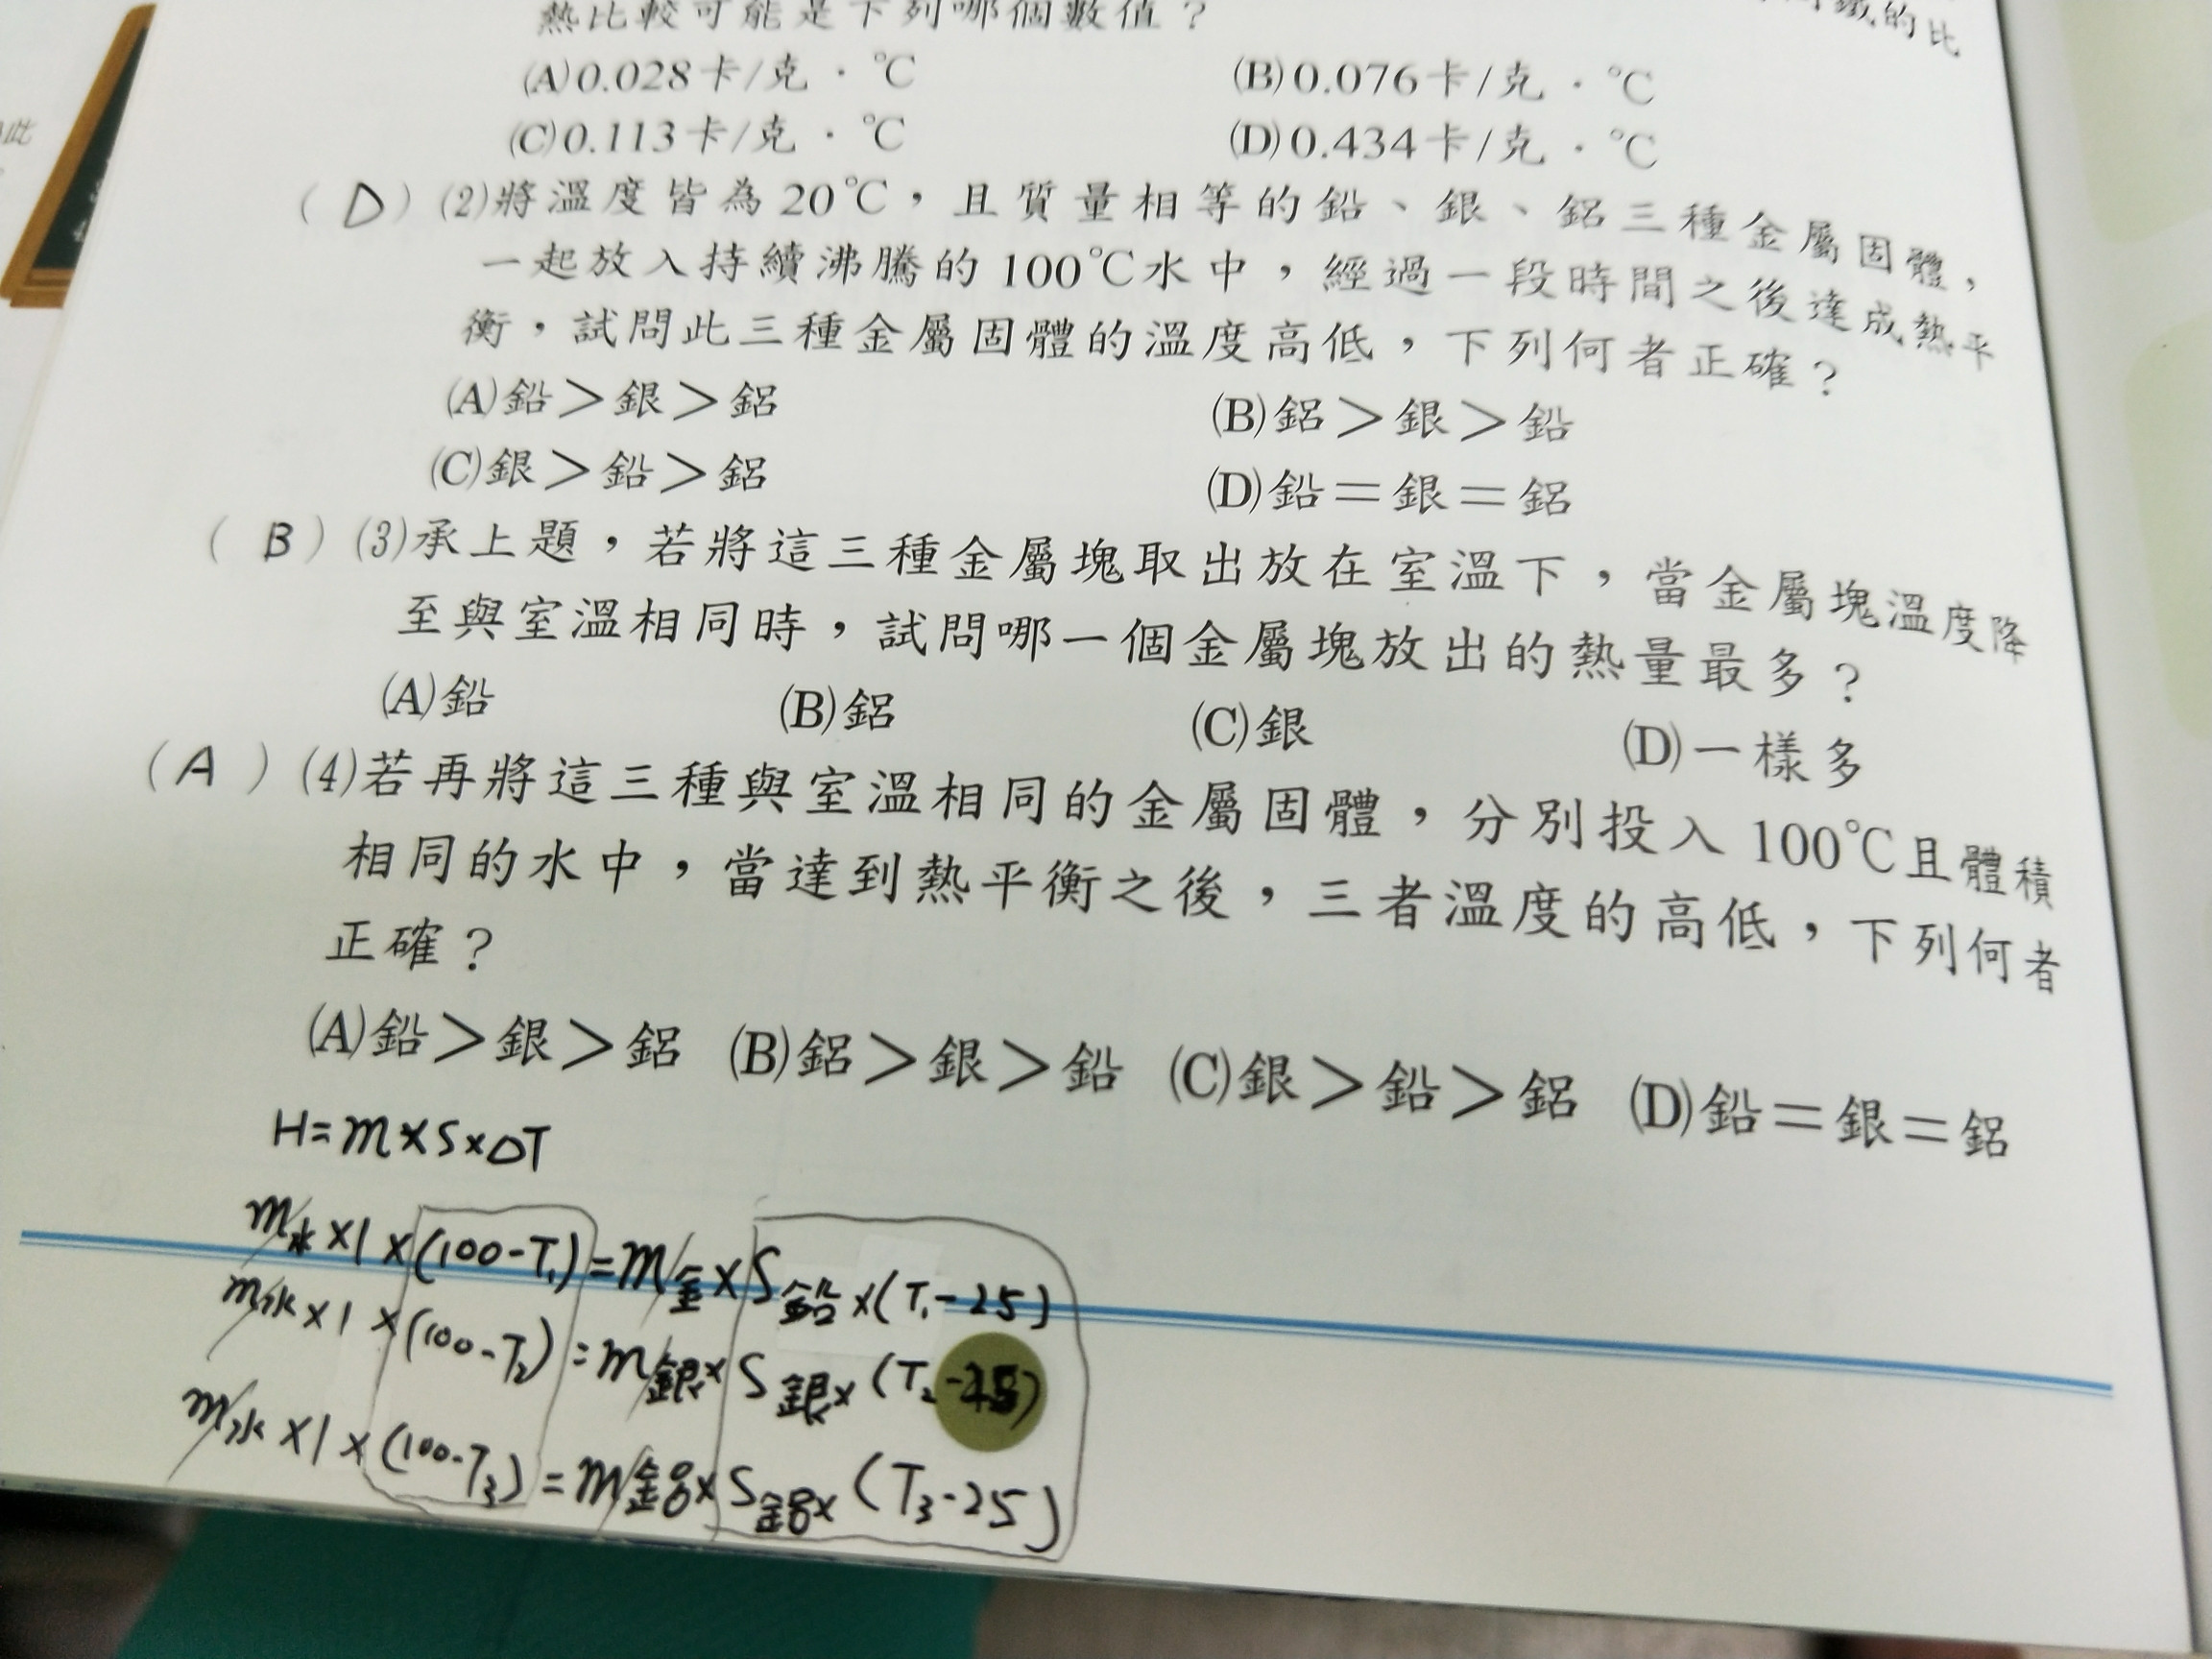 熱比較可能是下列哪個數值？
鐵的比
(A)0.028卡/克．℃ (B)0.076卡/克．℃
(C)0.113卡/克．℃ (D)0.434卡/克．℃
此
（D）(2)將溫度皆為20℃，且質量相等的鉛、銀、鋁三種金屬固體，
一起放入持續沸騰的100℃水中，經過一段時間之後達成熱平
衡，試問此三種金屬固體的溫度高低，下列何者正確？
(A)鉛＞銀＞鋁 (B)鋁＞銀＞鉛
(C)銀＞鉛＞鋁 (D)鉛＝銀＝鋁
（B）(3)承上題，若將這三種金屬塊取出放在室溫下，當金屬塊溫度降
至與室溫相同時，試問哪一個金屬塊放出的熱量最多？
(A)鉛 (B)鋁 (C)銀 (D)一樣多
（A）(4)若再將這三種與室溫相同的金屬固體，分別投入100℃且體積
相同的水中，當達到熱平衡之後，三者溫度的高低，下列何者
正確？
(A)鉛＞銀＞鋁 (B)鋁＞銀＞鉛 (C)銀＞鉛＞鋁 (D)鉛＝銀＝鋁
H=m×S×ΔT
m水×1×(100-T₁)=m金×S鉛×(T₁-25)
m水×1×(100-T₂)=m銀×S銀×(T₂-25)
m水×1×(100-T₃)=m鋁×S鋁×(T₃-25)